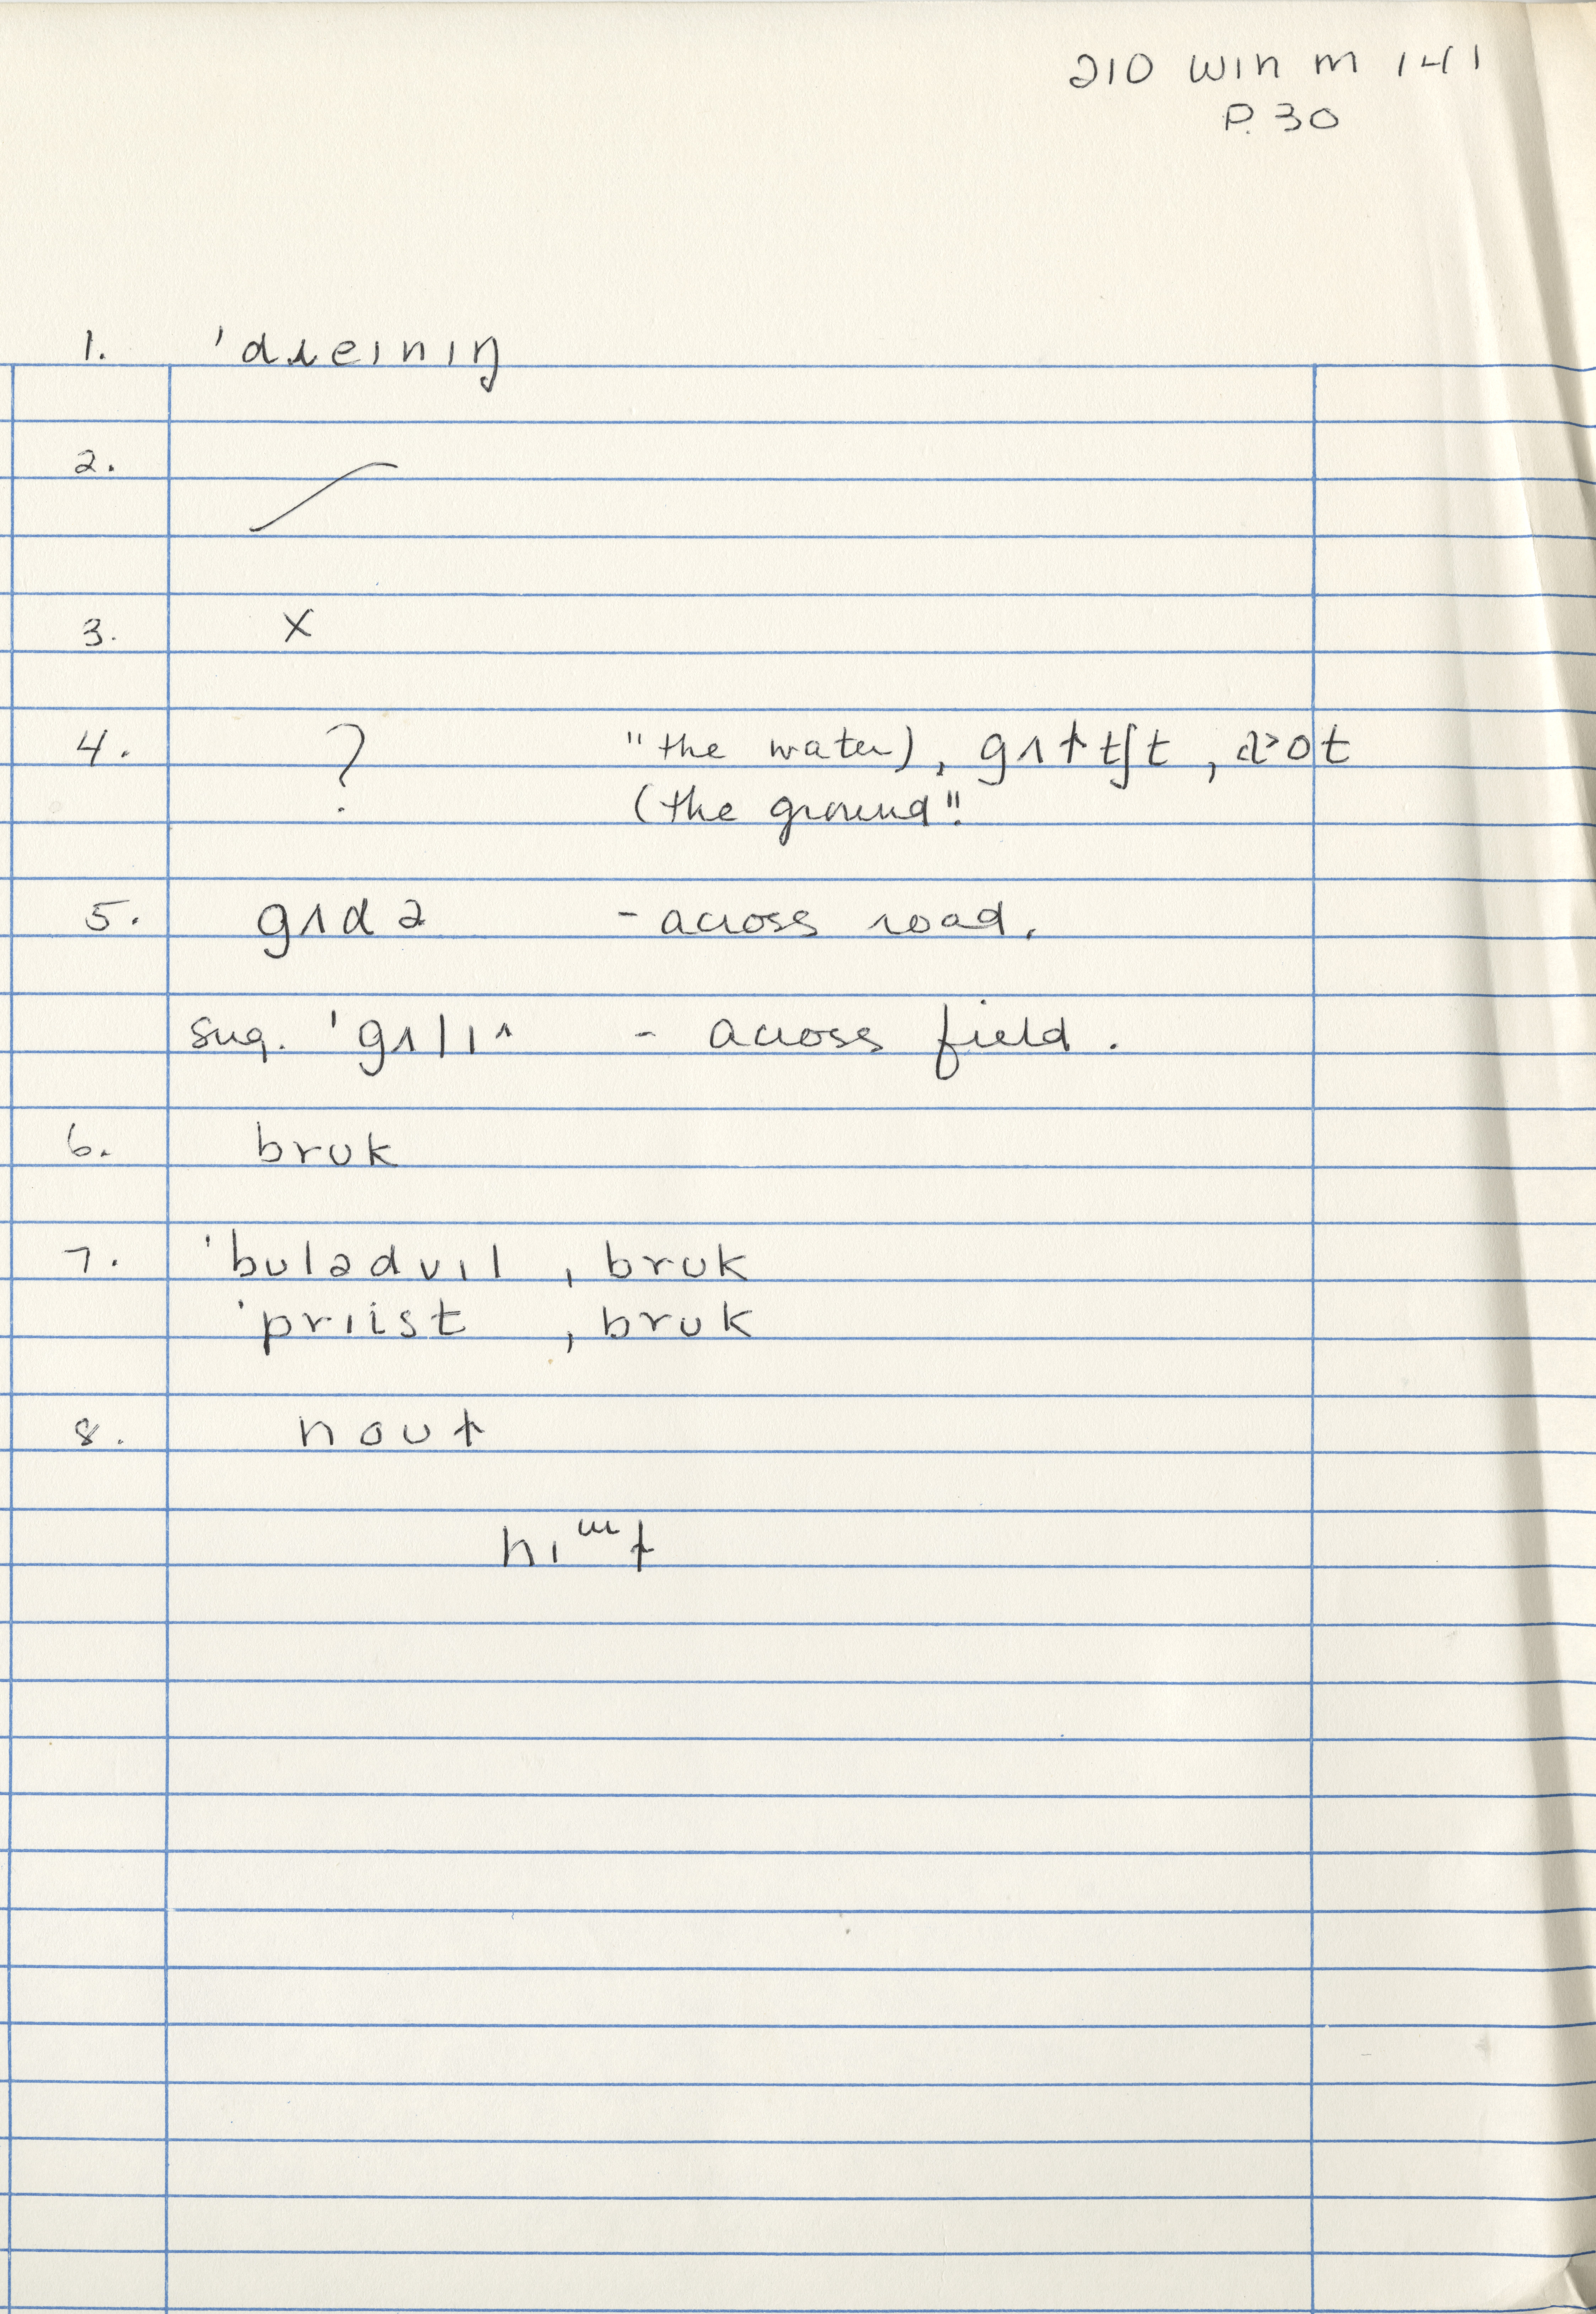 210 WIN M 141
P. 30
1. 'dɹeɪnɪŋ
2.
3. X
4. ? "the water), gʌɫtʃt,
(the ground".
5. gʌdə - across road.
sug. 'gʌlɪ^ - across field.
6. brʊk
7. 'bʊlədvɪl, brʊk
'priist, brʊk
8. noʊɫ
hɪᵚɫ